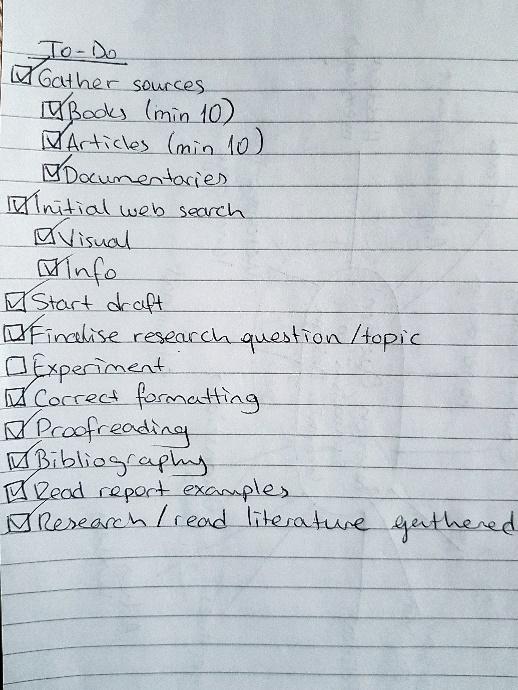 To-Do
☑ Gather sources
☑ Books (min 10)
☑ Articles (min 10)
☑ Documentaries
☑ Initial web search
☑ Visual
☑ Info
☑ Start draft
☑ Finalise research question/topic
☐ Experiment
☑ Correct formatting
☑ Proofreading
☑ Bibliography
☑ Read report examples
☑ Research/read literature gathered